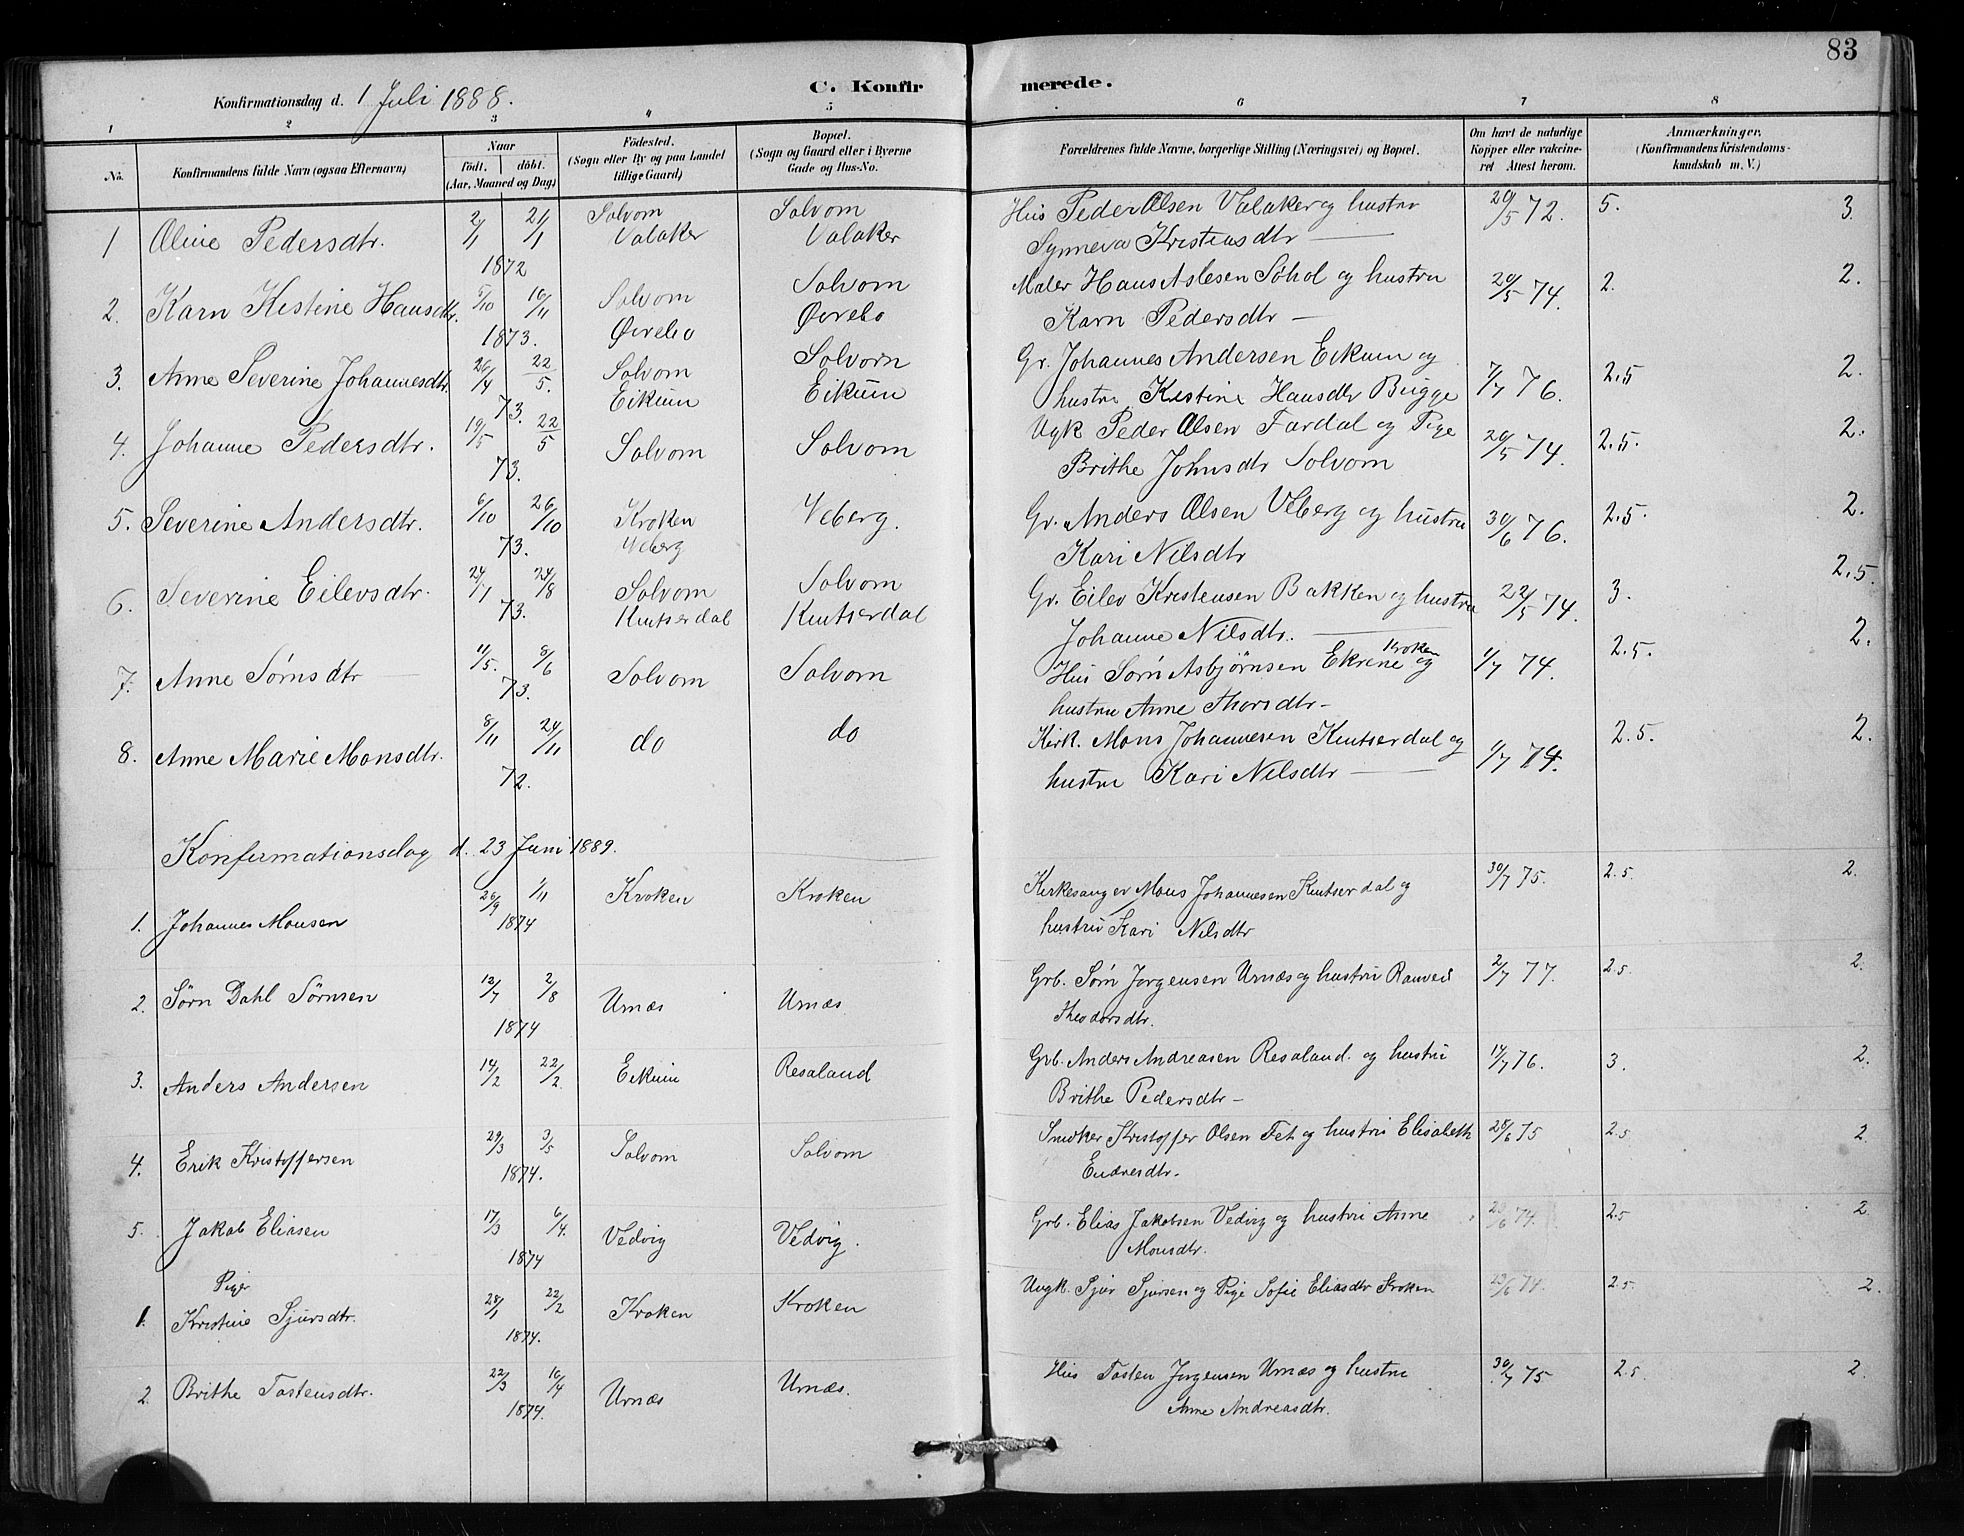 83
C. Konfirmerede.
Konfirmationsdag d. 1 Juli 1888.
1 2 3 4 5 6 7 8
No. Konfirmandens fulde Navn (ogsaa Efternavn) Naar födt. döbt. (Aar, Maaned og Dag) Födested. (Sogn eller By og paa Landet tillige Gaard) Bopæl. (Sogn og Gaard eller i Byerne Gade og Hus-No. Forældrenes fulde Navne, borgerlige Stilling (Næringsvei) og Bopæl. Om havt de naturlige Kopper eller vakcineret Attest herom. Anmærkninger. (Konfirmandens Kristendomskundskab m. V.)
1 Oline Pedersdtr. 2/1 21/1 1872 Solvorn Valaker Solvorn Valaker Hus Peder Olsen Valaker og hustru 20/5 72. 5. 3.
Synneva Kristensdtr —
2. Karn Kestine Hansdtr. 5/10 16/11 1873. Solvorn Øvrebo Solvorn Øvrebo Maler Hans Aslesen Søhol og hustru 20/5 74. 2. 2.
Karn Pedersdtr —
3. Anne Severine Johannesdtr. 26/4 22/5. 73. Solvorn Eikum Solvorn Eikum Gr. Johannes Andersen Eikum og 7/7 76. 2.5 2.
hustru Kestine Hansdtr Bugge
4. Johanne Pedersdtr. 19/5 22/5 73. Solvorn Solvorn Ugk Peder Olsen Fardal og Pige 20/5 74. 2.5. 2.
Brithe Johnsdtr Solvorn
5. Severine Andersdtr. 6/10 26/10 73. Kroken Veberg Veberg. Gr. Anders Olsen Veberg og hustru 30/6 76. 2.5. 2.
Kari Nilsdtr
6. Severine Eilevsdtr. 24/1 24/8 73. Solvorn Knutserdal Solvorn Knutserdal Gr. Eilev Kristensen Bakken og hustru 22/5 74. 3. 2.5.
Johanne Nilsdtr. —
7. Anne Sørnsdtr — 11/5. 8/6 73. Solvorn Solvorn Hus Sørn Asbjørnsen Ekrene Kroken og 1/7 74. 2.5. 2.
hustru Anne Thorsdtr –
8. Anne Marie Monsdtr. 8/11 24/11 72. do do Kirk. Mons Johannesen Knutserdal og 1/7 74. 2.5. 2.
hustru Kari Nilsdtr —
Konfirmationsdag d. 23 Juni 1889.
1. Johannes Monsen 26/9 1/11 1874 Kroken Kroken Kirkesanger Mons Johannesen Knutserdal og 30/7 75. 2.5. 2.
hustru Kari Nilsdtr
2. Sørn Dahl Sørnsen 12/7 2/8 1874 Urnæs Urnæs. Grb. Sørn Jørgensen Urnæs og hustru Ranveis 2/7 77. 2.5. 2.
Theodorsdtr.
3. Anders Andersen 14/2 22/2. Eikum Resaland Grb. Anders Andreasen Resaland. og hustru 14/7 76. 3. 2.
Brithe Pedersdtr –
4. Erik Kristoffersen 29/3 3/5 1874. Solvorn Solvorn Snedker Kristoffer Olsen Fet og hustru Elisabeth 28/6 75 2.5 2.
Endresdtr.
5. Jakob Eliasen 17/3 6/4. 1874 Vedvig Vedvig. Grb. Elias Jakobsen Vedvig og hustru Anne 23/6 74. 2.5 2.
Monsdtr.
Piger
1. Kristine Sjursdtr. 28/1 22/2 1874. Kroken Kroken Ungk. Sjur Sjursen og Pige Sofie Eliasdtr Kroken 23/6 74. 2.5 2.
2. Brithe Tostensdtr. 22/3 16/4 1874. Urnæs Urnæs. Hus Tosten Jørgensen Urnæs og hustru 30/7 75. 2.5. 2.
Anne Andreasdtr.